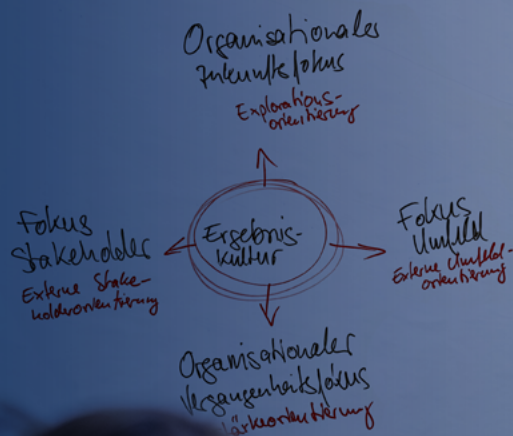 Organisationaler
Zukunftsfokus
Explorations-
orientierung
Fokus
Stakeholder
Externe Stake-
holderorientierung
Ergebnis-
kultur
Fokus
Umfeld
Externe Umfeld-
orientierung
Organisationaler
Vergangenheitsfokus